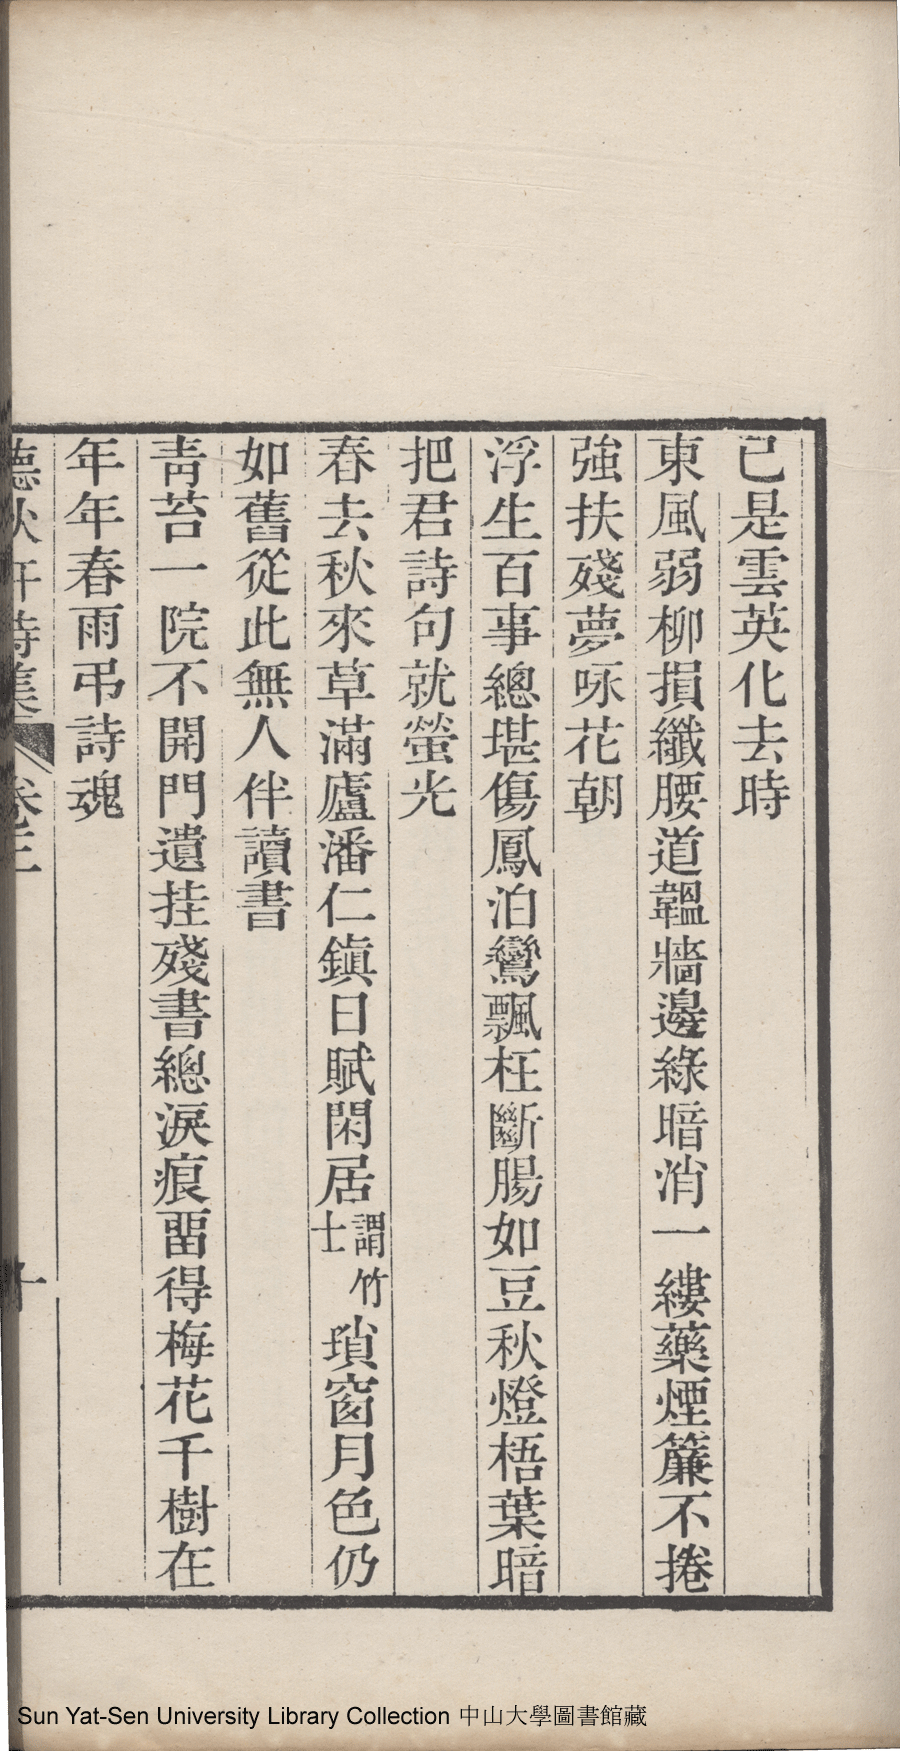 已是雲英化去時
東風弱柳損纖腰道韞牆邊綠暗消一縷藥煙簾不捲
強扶殘夢咏花朝
浮生百事總堪傷鳳泊鸞飄枉斷腸如豆秋燈梧葉暗
把君詩句就螢光
春去秋來草滿廬潘仁鎮日賦閑居謂竹士瑣窗月色仍
如舊從此無人伴讀書
靑苔一院不開門遺挂殘書總淚痕畱得梅花千樹在
年年春雨弔詩魂
聽秋軒詩集 卷三 十
Sun Yat-Sen University Library Collection 中山大學圖書館藏